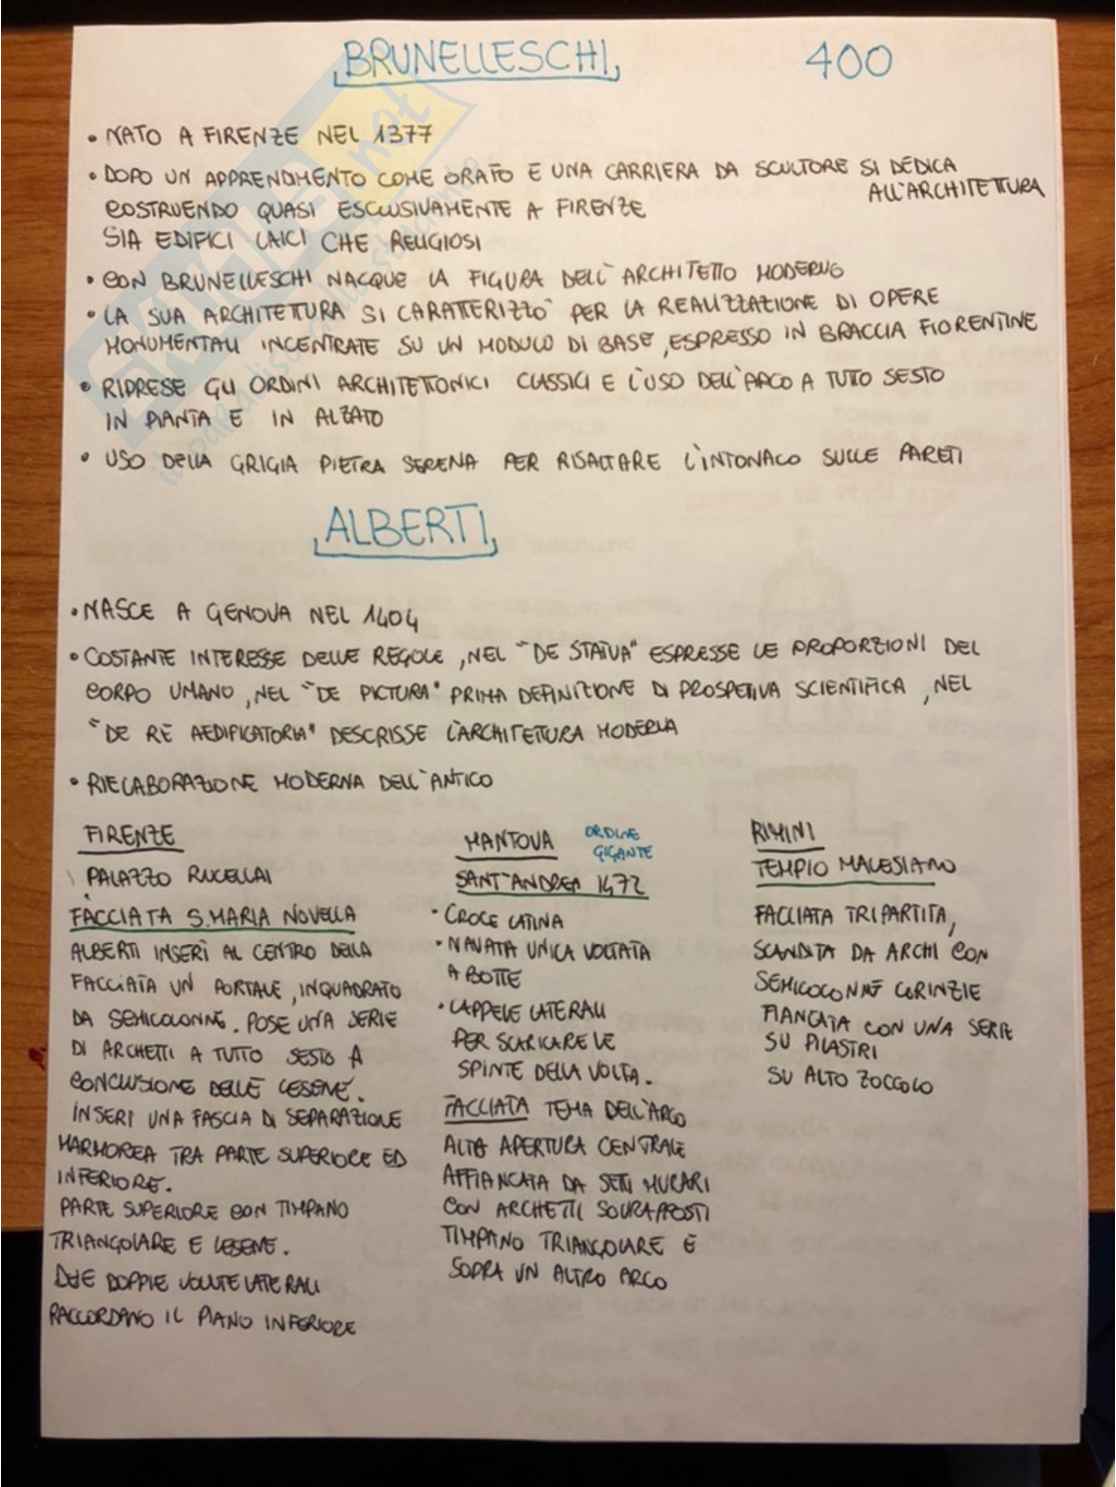 BRUNELLESCHI
400
• NATO A FIRENZE NEL 1377
• DOPO UN APPRENDIMENTO COME ORAFO E UNA CARRIERA DA SCULTORE SI DEDICA
ALL'ARCHITETTURA
COSTRUENDO QUASI ESCLUSIVAMENTE A FIRENZE
SIA EDIFICI LAICI CHE RELIGIOSI
• CON BRUNELLESCHI NACQUE LA FIGURA DELL'ARCHITETTO MODERNO
• LA SUA ARCHITETTURA SI CARATTERIZZÒ PER LA REALIZZAZIONE DI OPERE
MONUMENTALI INCENTRATE SU UN MODULO DI BASE, ESPRESSO IN BRACCIA FIORENTINE
• RIPRESE GLI ORDINI ARCHITETTONICI CLASSICI E L'USO DELL'ARCO A TUTTO SESTO
IN PIANTA E IN ALZATO
• USO DELLA GRIGIA PIETRA SERENA PER RISALTARE L'INTONACO SULLE PARETI
ALBERTI
• NASCE A GENOVA NEL 1404
• COSTANTE INTERESSE DELLE REGOLE, NEL "DE STATUA" ESPRESSE LE PROPORZIONI DEL
CORPO UMANO, NEL "DE PICTURA" PRIMA DEFINIZIONE DI PROSPETIVA SCIENTIFICA, NEL
"DE RE AEDIFICATORIA" DESCRISSE L'ARCHITETTURA MODERNA
• RIELABORAZIONE MODERNA DELL'ANTICO
FIRENZE
PALAZZO RUCELLAI
FACCIATA S. MARIA NOVELLA
ALBERTI INSERÌ AL CENTRO DELLA
FACCIATA UN PORTALE, INQUADRATO
DA SEMICOLONNE. POSE UNA SERIE
DI ARCHETTI A TUTTO SESTO A
CONCLUSIONE DELLE LESENE.
INSERÌ UNA FASCIA DI SEPARAZIONE
MARMOREA TRA PARTE SUPERIORE ED
INFERIORE.
PARTE SUPERIORE CON TIMPANO
TRIANGOLARE E LESENE.
DUE DOPPIE VOLUTE LATERALI
RACCORDANO IL PIANO INFERIORE
MANTOVA
ORDINE
GIGANTE
SANT'ANDREA 1472
• CROCE LATINA
• NAVATA UNICA VOLTATA
A BOTTE
• CAPPELE LATERALI
PER SCARICARE LE
SPINTE DELLA VOLTA.
FACCIATA TEMA DELL'ARCO
ALTA APERTURA CENTRALE
AFFIANCATA DA SETTI MURARI
CON ARCHETTI SOVRAPPOSTI
TIMPANO TRIANGOLARE E
SOPRA UN ALTRO ARCO
RIMINI
TEMPIO MALESIANO
FACCIATA TRIPARTITA,
SCANDITA DA ARCHI CON
SEMICOLONNE CORINZIE
FIANCATA CON UNA SERIE
SU PILASTRI
SU ALTO ZOCCOLO